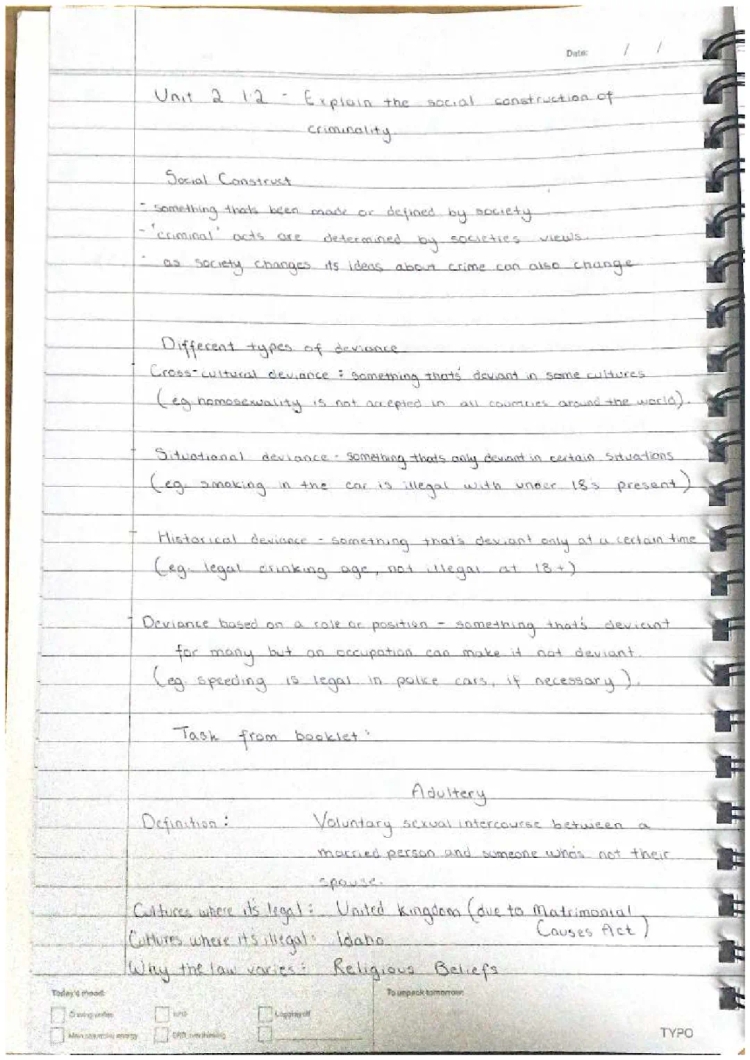 Date: / /
Unit 2 1.2 - Explain the social construction of
criminality.
Social Construct
- something thats been made or defined by society
- 'criminal' acts are determined by societies views.
- as society changes its ideas about crime can also change
Different types of deviance
Cross-cultural deviance : something that's deviant in some cultures
(eg. homosexuality is not accepted in all countries around the world).
Situational deviance - something thats only deviant in certain situations
(eg. smoking in the car is illegal with under 18's present)
Historical deviance - something that's deviant only at a certain time
(eg. legal drinking age, not illegal at 18+)
Deviance based on a role or position - something that's deviant
for many but an occupation can make it not deviant.
(eg. speeding is legal in police cars, if necessary).
Task from booklet:
Adultery
Definition : Voluntary sexual intercourse between a
married person and someone who's not their
spouse.
Cultures where it's legal : United Kingdom (due to Matrimonial
Causes Act)
Cultures where its illegal: Idaho
Why the law varies : Religious Beliefs
Today's mood:
To unpack tomorrow:
Logging off
TYPO